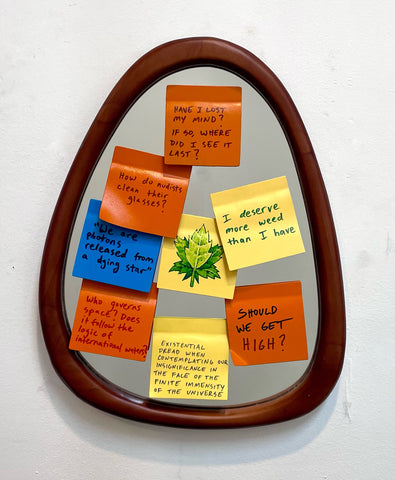 HAVE I LOST
MY MIND?
IF SO, WHERE
DID I SEE IT
LAST?
How do nudists
clean their
glasses?
I deserve
more weed
than I have
"We are
photons
released from
a dying star"
Who governs
space? Does
it follow the
logic of
international waters?
SHOULD
WE GET
HIGH?
EXISTENTIAL
DREAD WHEN
CONTEMPLATING OUR
INSIGNIFICANCE IN
THE FACE OF THE
FINITE IMMENSITY
OF THE UNIVERSE